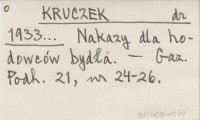 KRUCZEK dr
1933... Nakazy dla ho-
dowców bydła. — Gaz.
Podh. 21, nr 24-26.